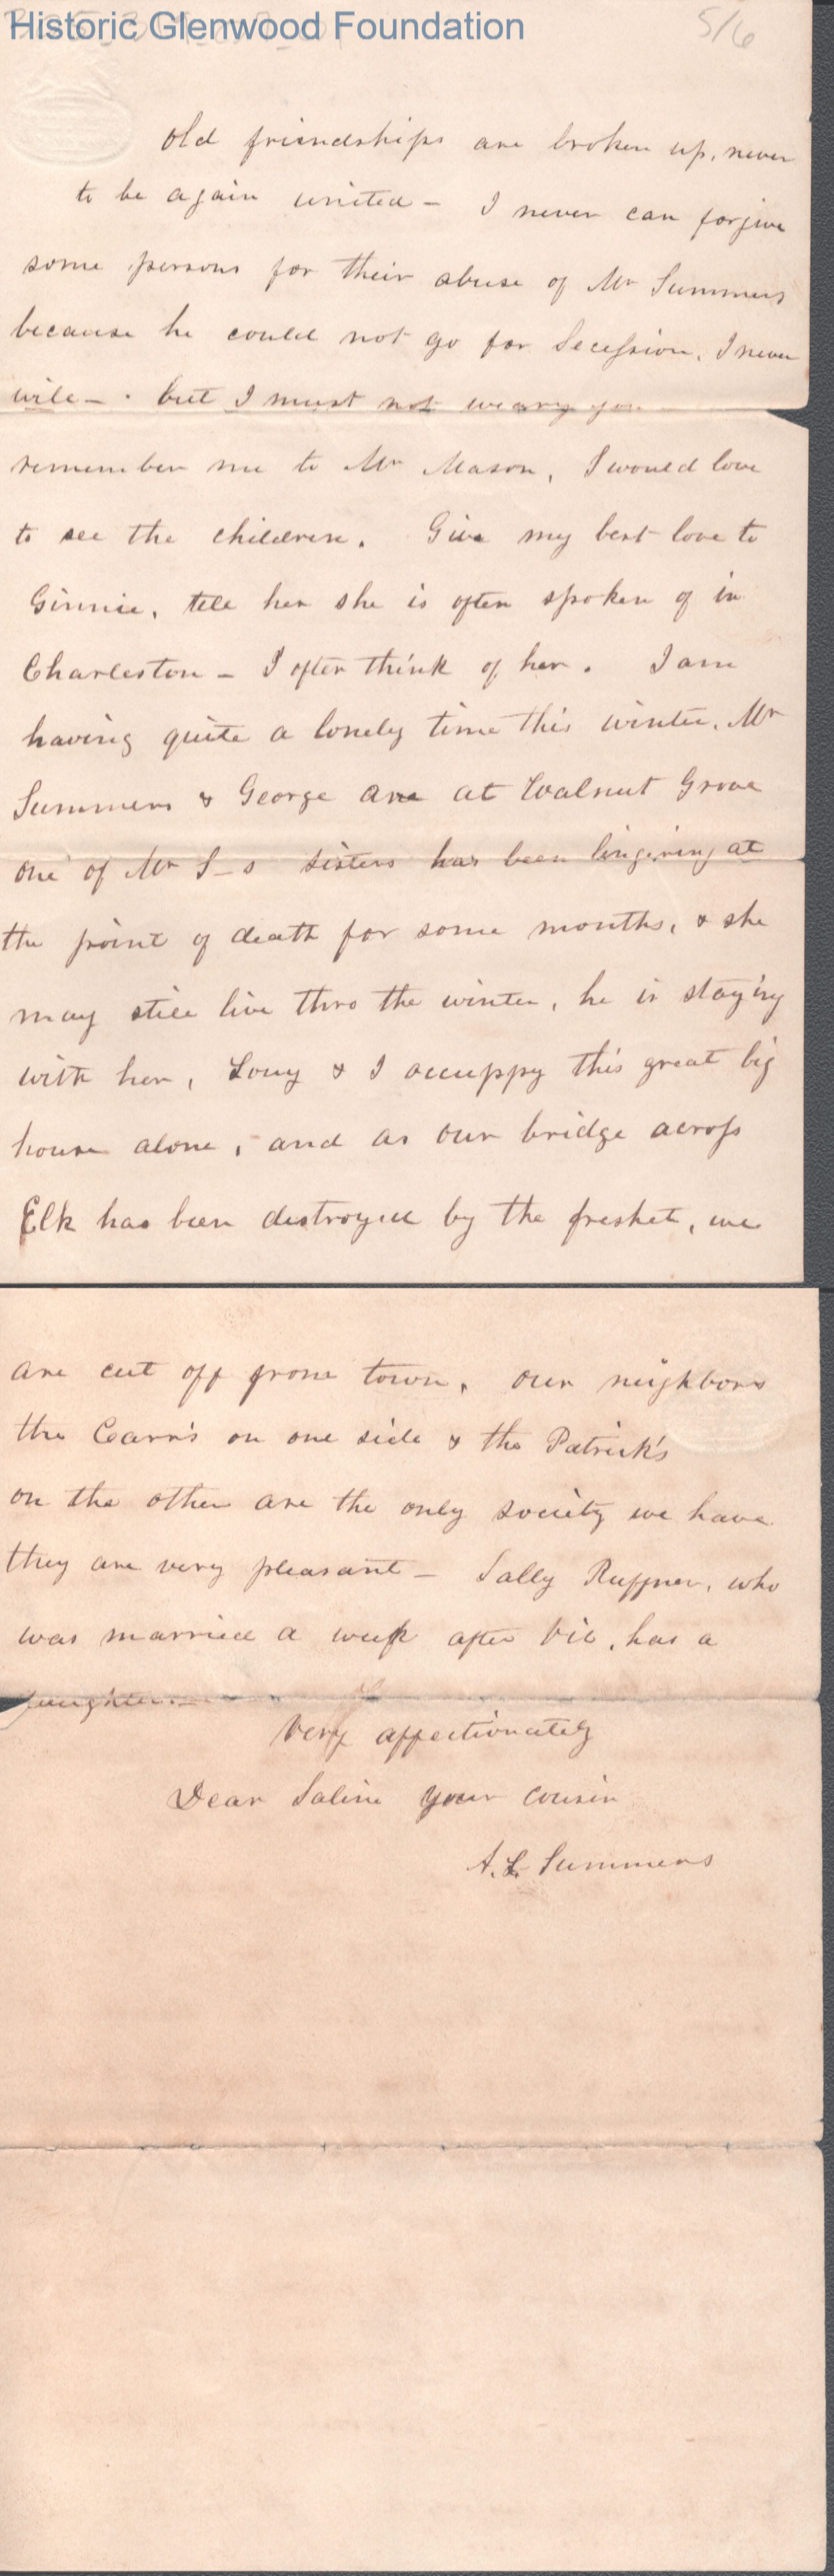 Historic Glenwood Foundation
5/6
Old friendships are broken up, never
to be again united - I never can forgive
some persons for their abuse of Mr Summers
because he could not go for Secession, I never
will - . but I must not weary you
remember me to Mr Mason, I would love
to see the children. Give my best love to
Ginnie, tell her she is often spoken of in
Charleston - I often think of her. I am
having quite a lonely time this winter. Mr
Summers & George are at Walnut Grove
one of Mr S-s sisters has been lingering at
the point of death for some months, & she
may still live thro the winter, he is staying
with her, Louy & I occuppy this great big
house alone, and as our bridge across
Elk has been destroyed by the freshet, we
are cut off from town, our neighbors
the Carr's on one side & the Patrick's
on the other are the only society we have
they are very pleasant - Sally Ruffner, who
was married a week after Vic, has a
daughter. -
Very affectionately
Dear Saline your cousin
A. L. Summers